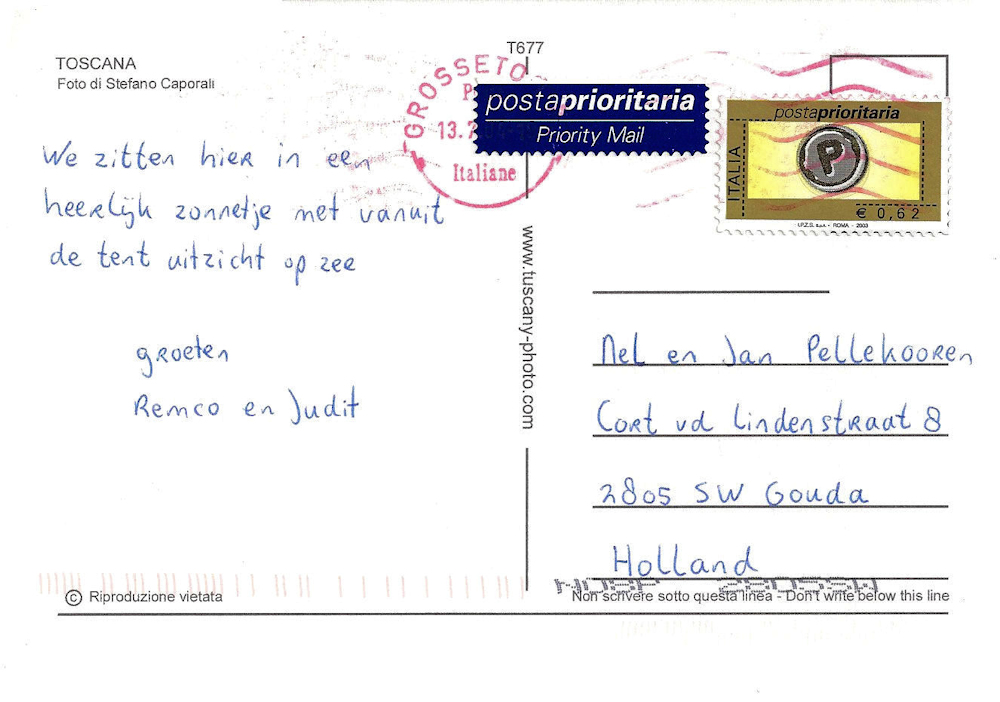 TOSCANA
Foto di Stefano Caporali
T677
GROSSETO
13.7
Italiane
postaprioritaria
Priority Mail
postaprioritaria
P
ITALIA
€ 0,62
I.P.Z.S. S.p.A. - ROMA - 2003
We zitten hier in een
heerlijk zonnetje met vanuit
de tent uitzicht op zee
groeten
Remco en Judit
www.tuscany-photo.com
Nel en Jan Pellekooren
Cort vd Lindenstraat 8
2805 SW Gouda
Holland
© Riproduzione vietata
Non scrivere sotto questa linea - Don't write below this line